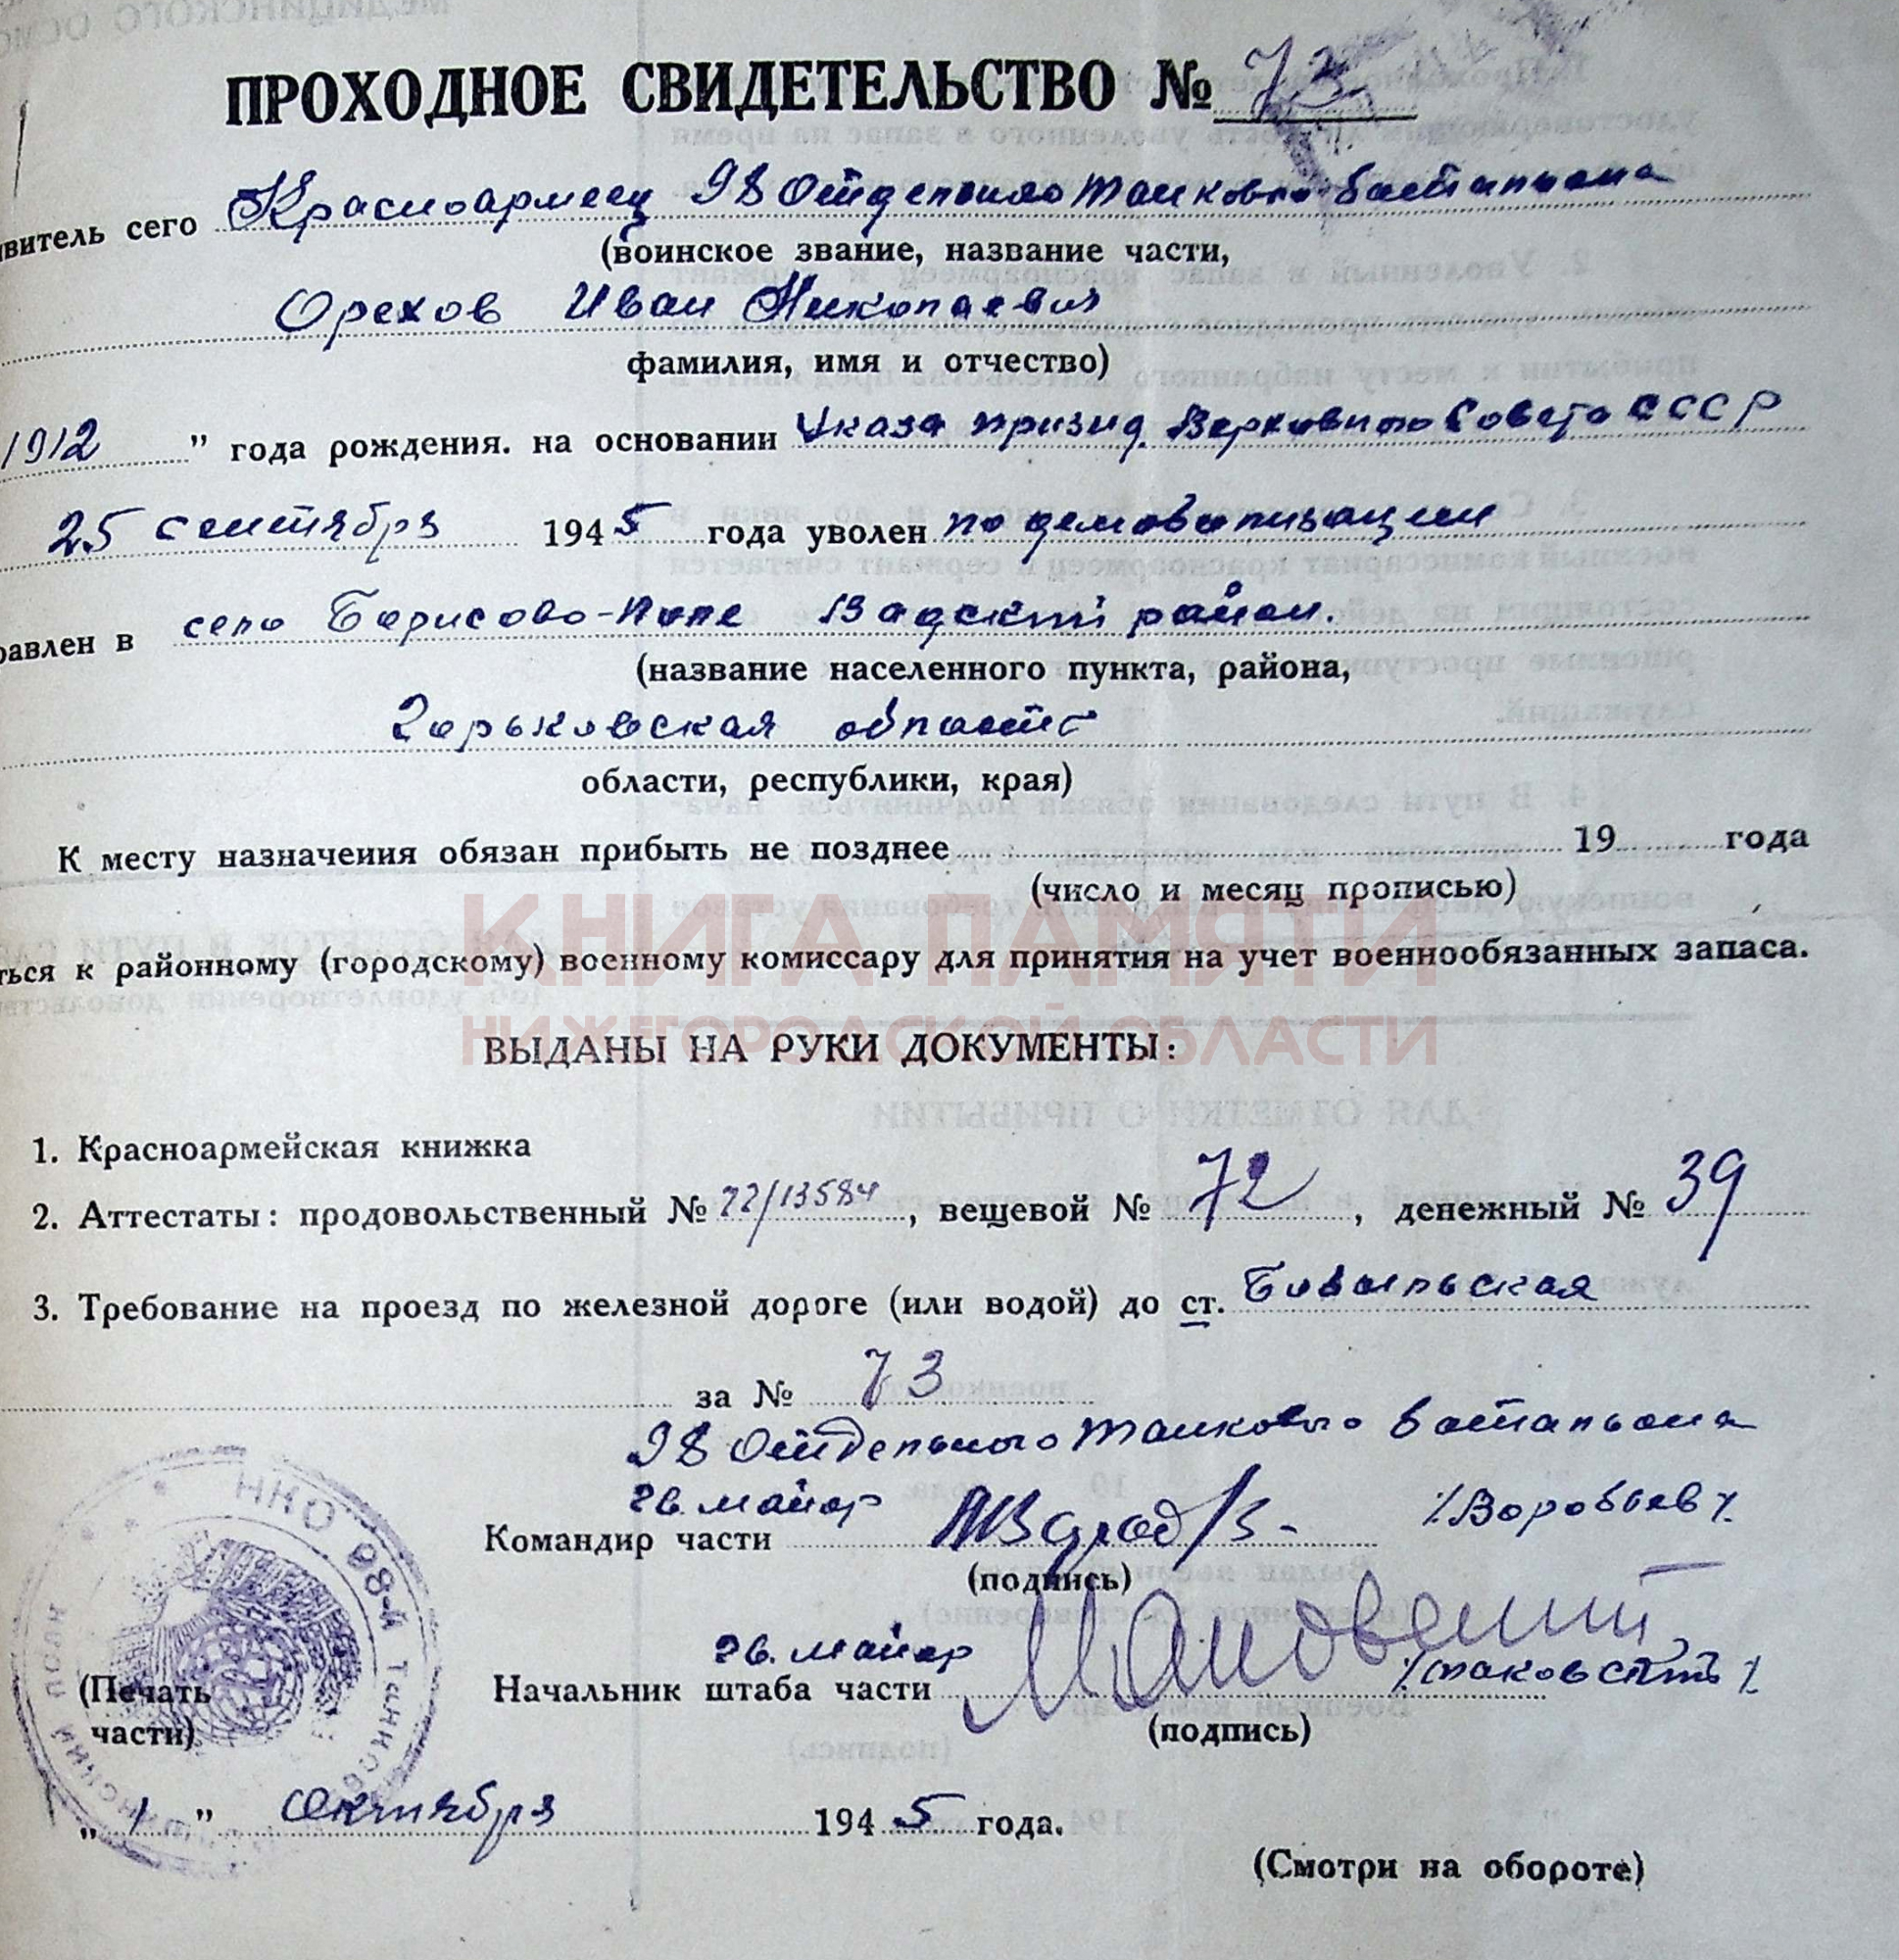 ПРОХОДНОЕ СВИДЕТЕЛЬСТВО № 73
витель сего Красноармеец 98 Отдельного Танкового батальона
(воинское звание, название части,
Орехов Иван Николаевич
фамилия, имя и отчество)
1912 " года рождения. на основании Указа Презид. Верховного Совета СССР
25 сентября 1945 года уволен по демобилизации
равлен в село Борисово-Поле Вадский район.
(название населенного пункта, района,
Горьковская область
области, республики, края)
К месту назначения обязан прибыть не позднее 19 года
(число и месяц прописью)
КНИГА ПАМЯТИ
ться к районному (городскому) военному комиссару для принятия на учет военнообязанных запаса.
НИЖЕГОРОДСКОЙ ОБЛАСТИ
ВЫДАНЫ НА РУКИ ДОКУМЕНТЫ:
1. Красноармейская книжка
2. Аттестаты: продовольственный № 72/13584, вещевой № 72, денежный № 39
3. Требование на проезд по железной дороге (или водой) до ст.
за № 73
98 Отдельного Танкового батальона
гв. майор /Воробьев/
Командир части
(подпись)
гв. майор
Начальник штаба части /Маковский/
(подпись)
(Печать
части)
НКО 98-й
" 1 " Октября 1945 года.
(Смотри на обороте)